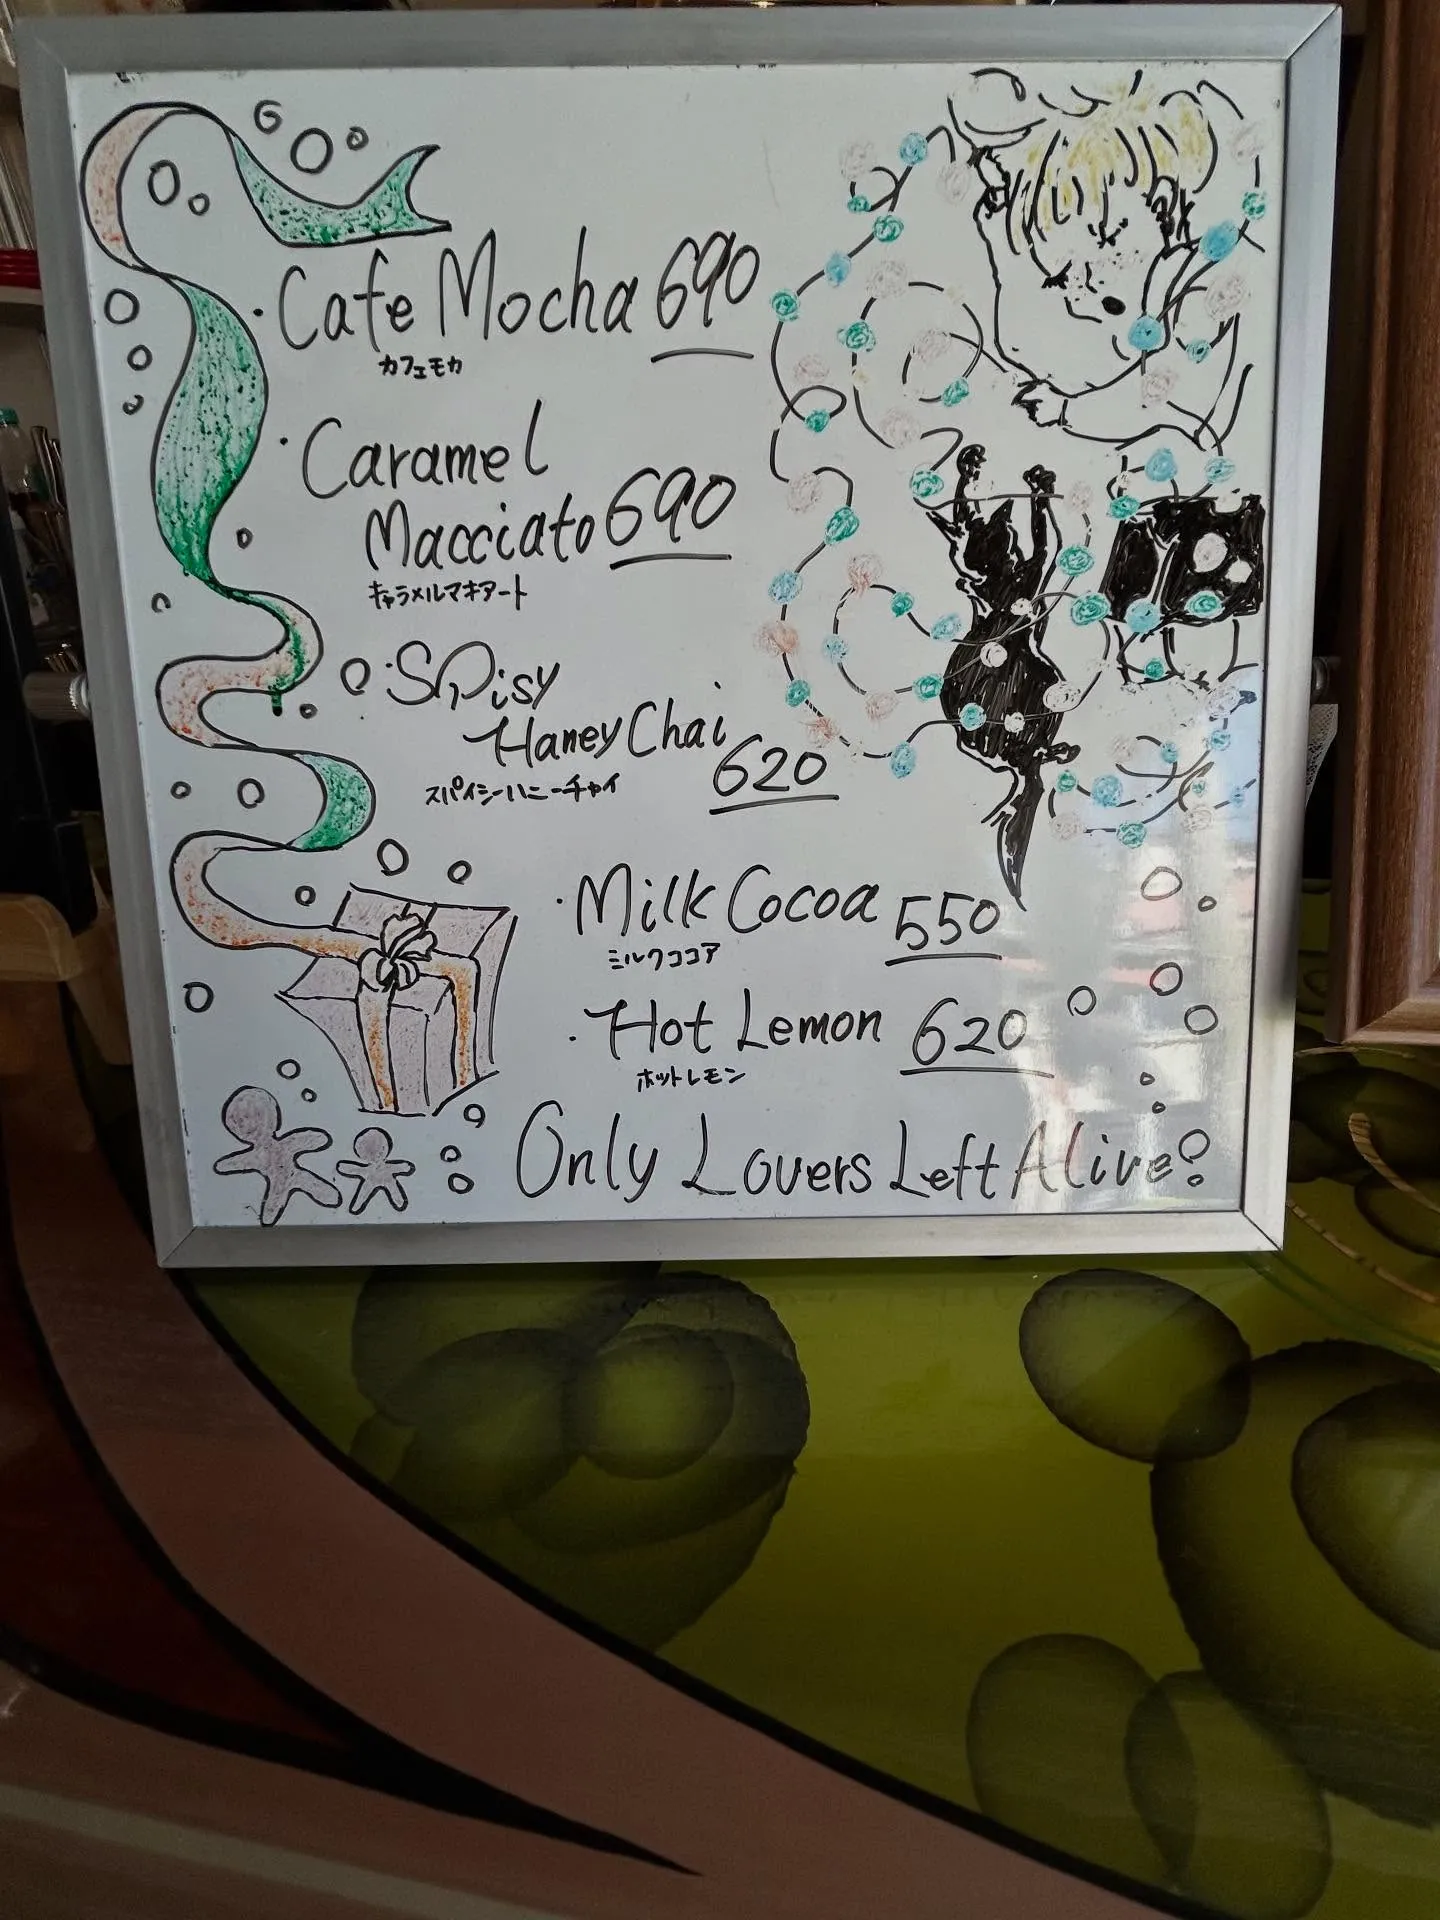 ・Cafe Mocha 690
カフェモカ
・Caramel
Macciato 690
キャラメルマキアート
・Spisy
Haney Chai
620
スパイシーハニーチャイ
・Milk Cocoa 550
ミルクココア
・Hot Lemon 620
ホットレモン
Only Lovers Left Alive